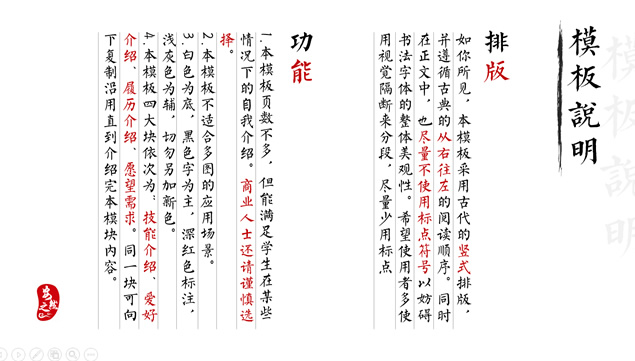 模板說明
模板說明
排版
如你所见，本模板采用古代的竖式排版，
并遵循古典的从右往左的阅读顺序。同时
在正文中，也尽量不使用标点符号以妨碍
书法字体的整体美观性。希望使用者多使
用视觉隔断来分段，尽量少用标点
功能
1.本模板页数不多，但能满足学生在某些
情况下的自我介绍。商业人士还请谨慎选
择。
2.本模板不适合多图的应用场景。
3.白色为底，黑色字为主，深红色标注，
浅灰色为辅，切勿另加新色。
4.本模板四大块依次为：技能介绍、爱好
介绍、履历介绍、愿望需求。同一块可向
下复制沿用直到介绍完本模块内容。